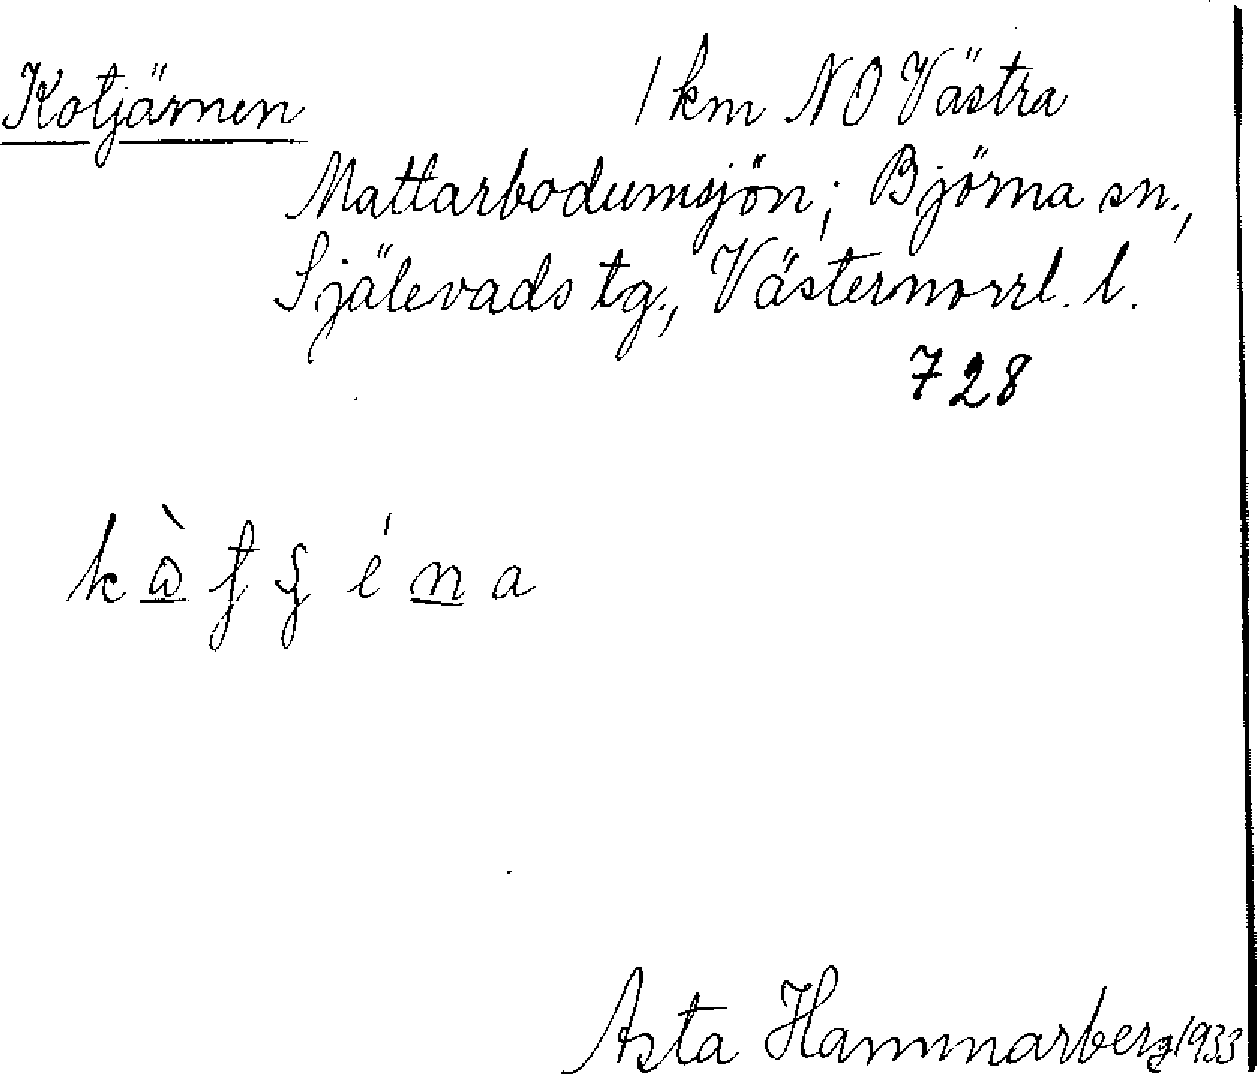 Kotjärnen 1 km NO Västra
Mattarbodumsjön; Björna sn.,
Själevads tg., Västernorrl. l.
728
Asta Hammarberg 1933